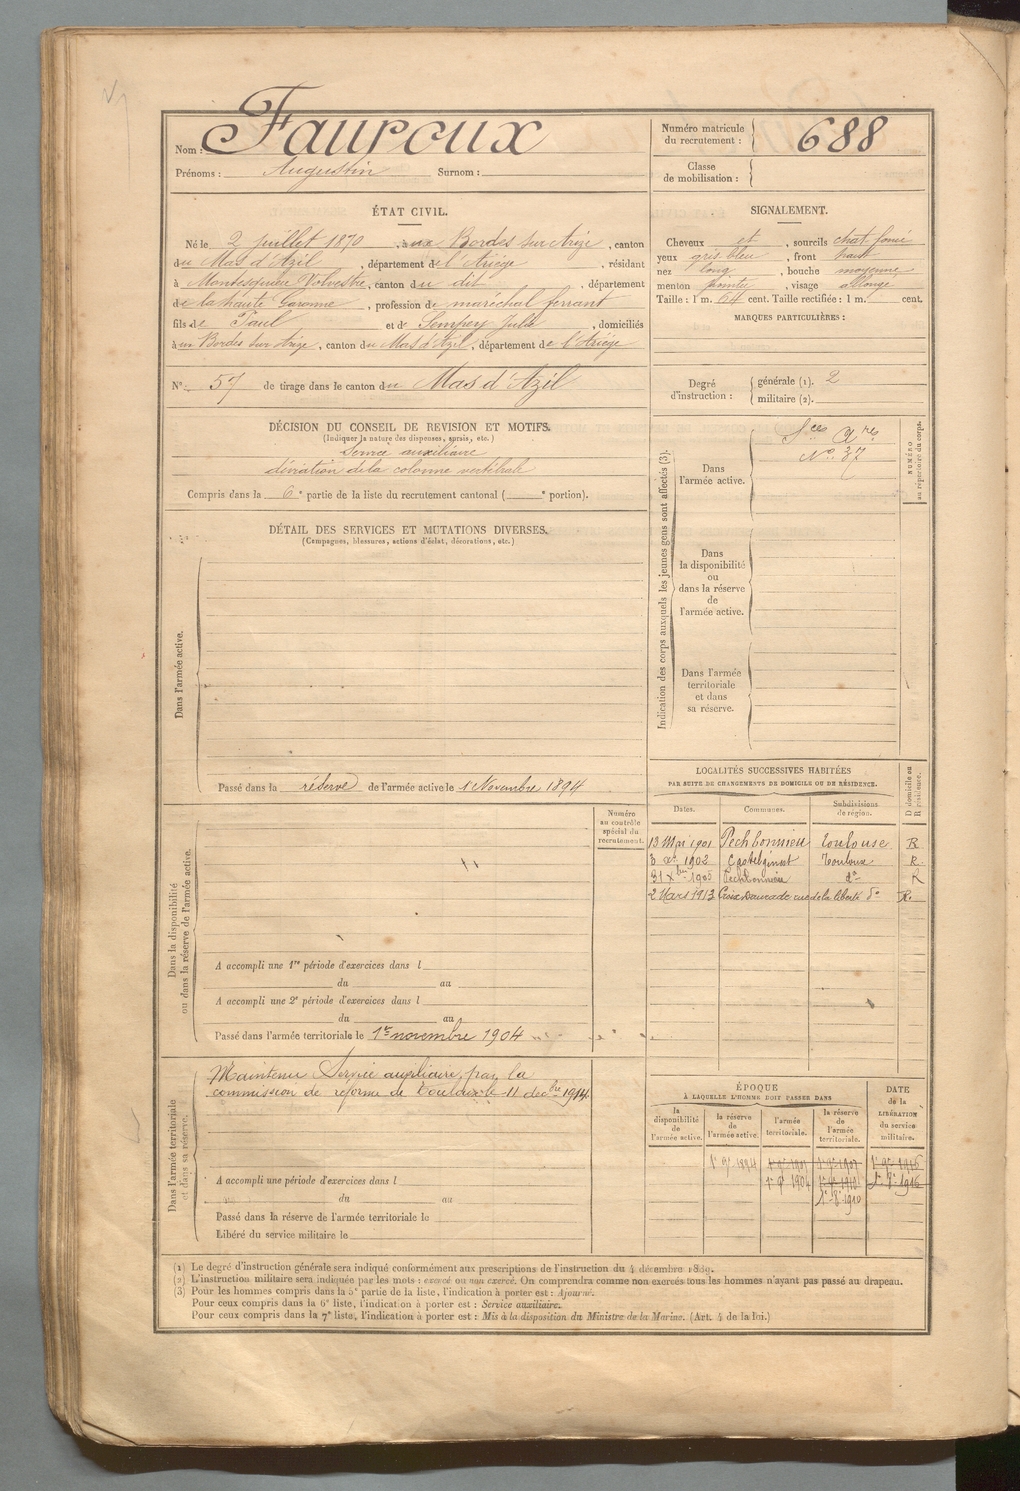 Nom : Fauroux
Prénoms : Augustin Surnom :
Numéro matricule du recrutement : 688
Classe de mobilisation :
ÉTAT CIVIL.
Né le 2 juillet 1870, à aux Bordes sur Arize, canton
du Mas d'Azil, département de l'Ariège, résidant
à Montesquieu Volvestre, canton du dit, département
de la haute Garonne, profession de maréchal ferrant
fils de Paul et de Sempey Julie, domiciliés
à aux Bordes sur Arize, canton du Mas d'Azil, département de l'Ariège
N° 57 de tirage dans le canton du Mas d'Azil
SIGNALEMENT.
Cheveux et, sourcils chat. foncé
yeux gris bleu, front haut
nez long, bouche moyenne
menton pointu, visage allongé
Taille : 1 m. 64 cent. Taille rectifiée : 1 m. cent.
MARQUES PARTICULIÈRES :
Degré d'instruction : générale (1). 2
militaire (2).
DÉCISION DU CONSEIL DE REVISION ET MOTIFS.
(Indiquer la nature des dispenses, sursis, etc.)
Service auxiliaire
déviation de la colonne vertébrale
Compris dans la 6e partie de la liste du recrutement cantonal ( e portion).
DÉTAIL DES SERVICES ET MUTATIONS DIVERSES.
(Campagnes, blessures, actions d'éclat, décorations, etc.)
Dans l'armée active.
Passé dans la réserve de l'armée active le 1 Novembre 1894
Indication des corps auxquels les jeunes gens sont affectés (3).
NUMÉRO au répertoire du corps.
Dans l'armée active.
Sces Ares
No 37
Dans la disponibilité ou dans la réserve de l'armée active.
Dans l'armée territoriale et dans sa réserve.
LOCALITÉS SUCCESSIVES HABITÉES
PAR SUITE DE CHANGEMENTS DE DOMICILE OU DE RÉSIDENCE.
D domicile ou R résidence.
Dates. Communes. Subdivisions de région.
13 Mai 1901 Pechbonnieu Toulouse R
1902 Castelginest Toulouse R.
31 Xbre 1905 Pechbonnieu do R
2 Mars 1913 Croix Daurade rue de la liberté do R.
Numéro au contrôle spécial du recrutement.
Dans la disponibilité ou dans la réserve de l'armée active.
A accompli une 1re période d'exercices dans l
du au
A accompli une 2e période d'exercices dans l
du au
Passé dans l'armée territoriale le 1er novembre 1904
Dans l'armée territoriale et dans sa réserve.
Maintenu Service auxiliaire par la
commission de réforme de Toulouse le 11 decbre 1914
A accompli une période d'exercices dans l
du au
Passé dans la réserve de l'armée territoriale le
Libéré du service militaire le
ÉPOQUE
À LAQUELLE L'HOMME DOIT PASSER DANS
DATE de la LIBÉRATION du service militaire.
la disponibilité de l'armée active. la réserve de l'armée active. l'armée territoriale. la réserve de l'armée territoriale.
1894
1904 1910 1916
(1) Le degré d'instruction générale sera indiqué conformément aux prescriptions de l'instruction du 4 décembre 1889.
(2) L'instruction militaire sera indiquée par les mots : exercé ou non exercé. On comprendra comme non exercés tous les hommes n'ayant pas passé au drapeau.
(3) Pour les hommes compris dans la 5e partie de la liste, l'indication à porter est : Ajourné.
Pour ceux compris dans la 6e liste, l'indication à porter est : Service auxiliaire.
Pour ceux compris dans la 7e liste, l'indication à porter est : Mis à la disposition du Ministre de la Marine. (Art. 4 de la loi.)